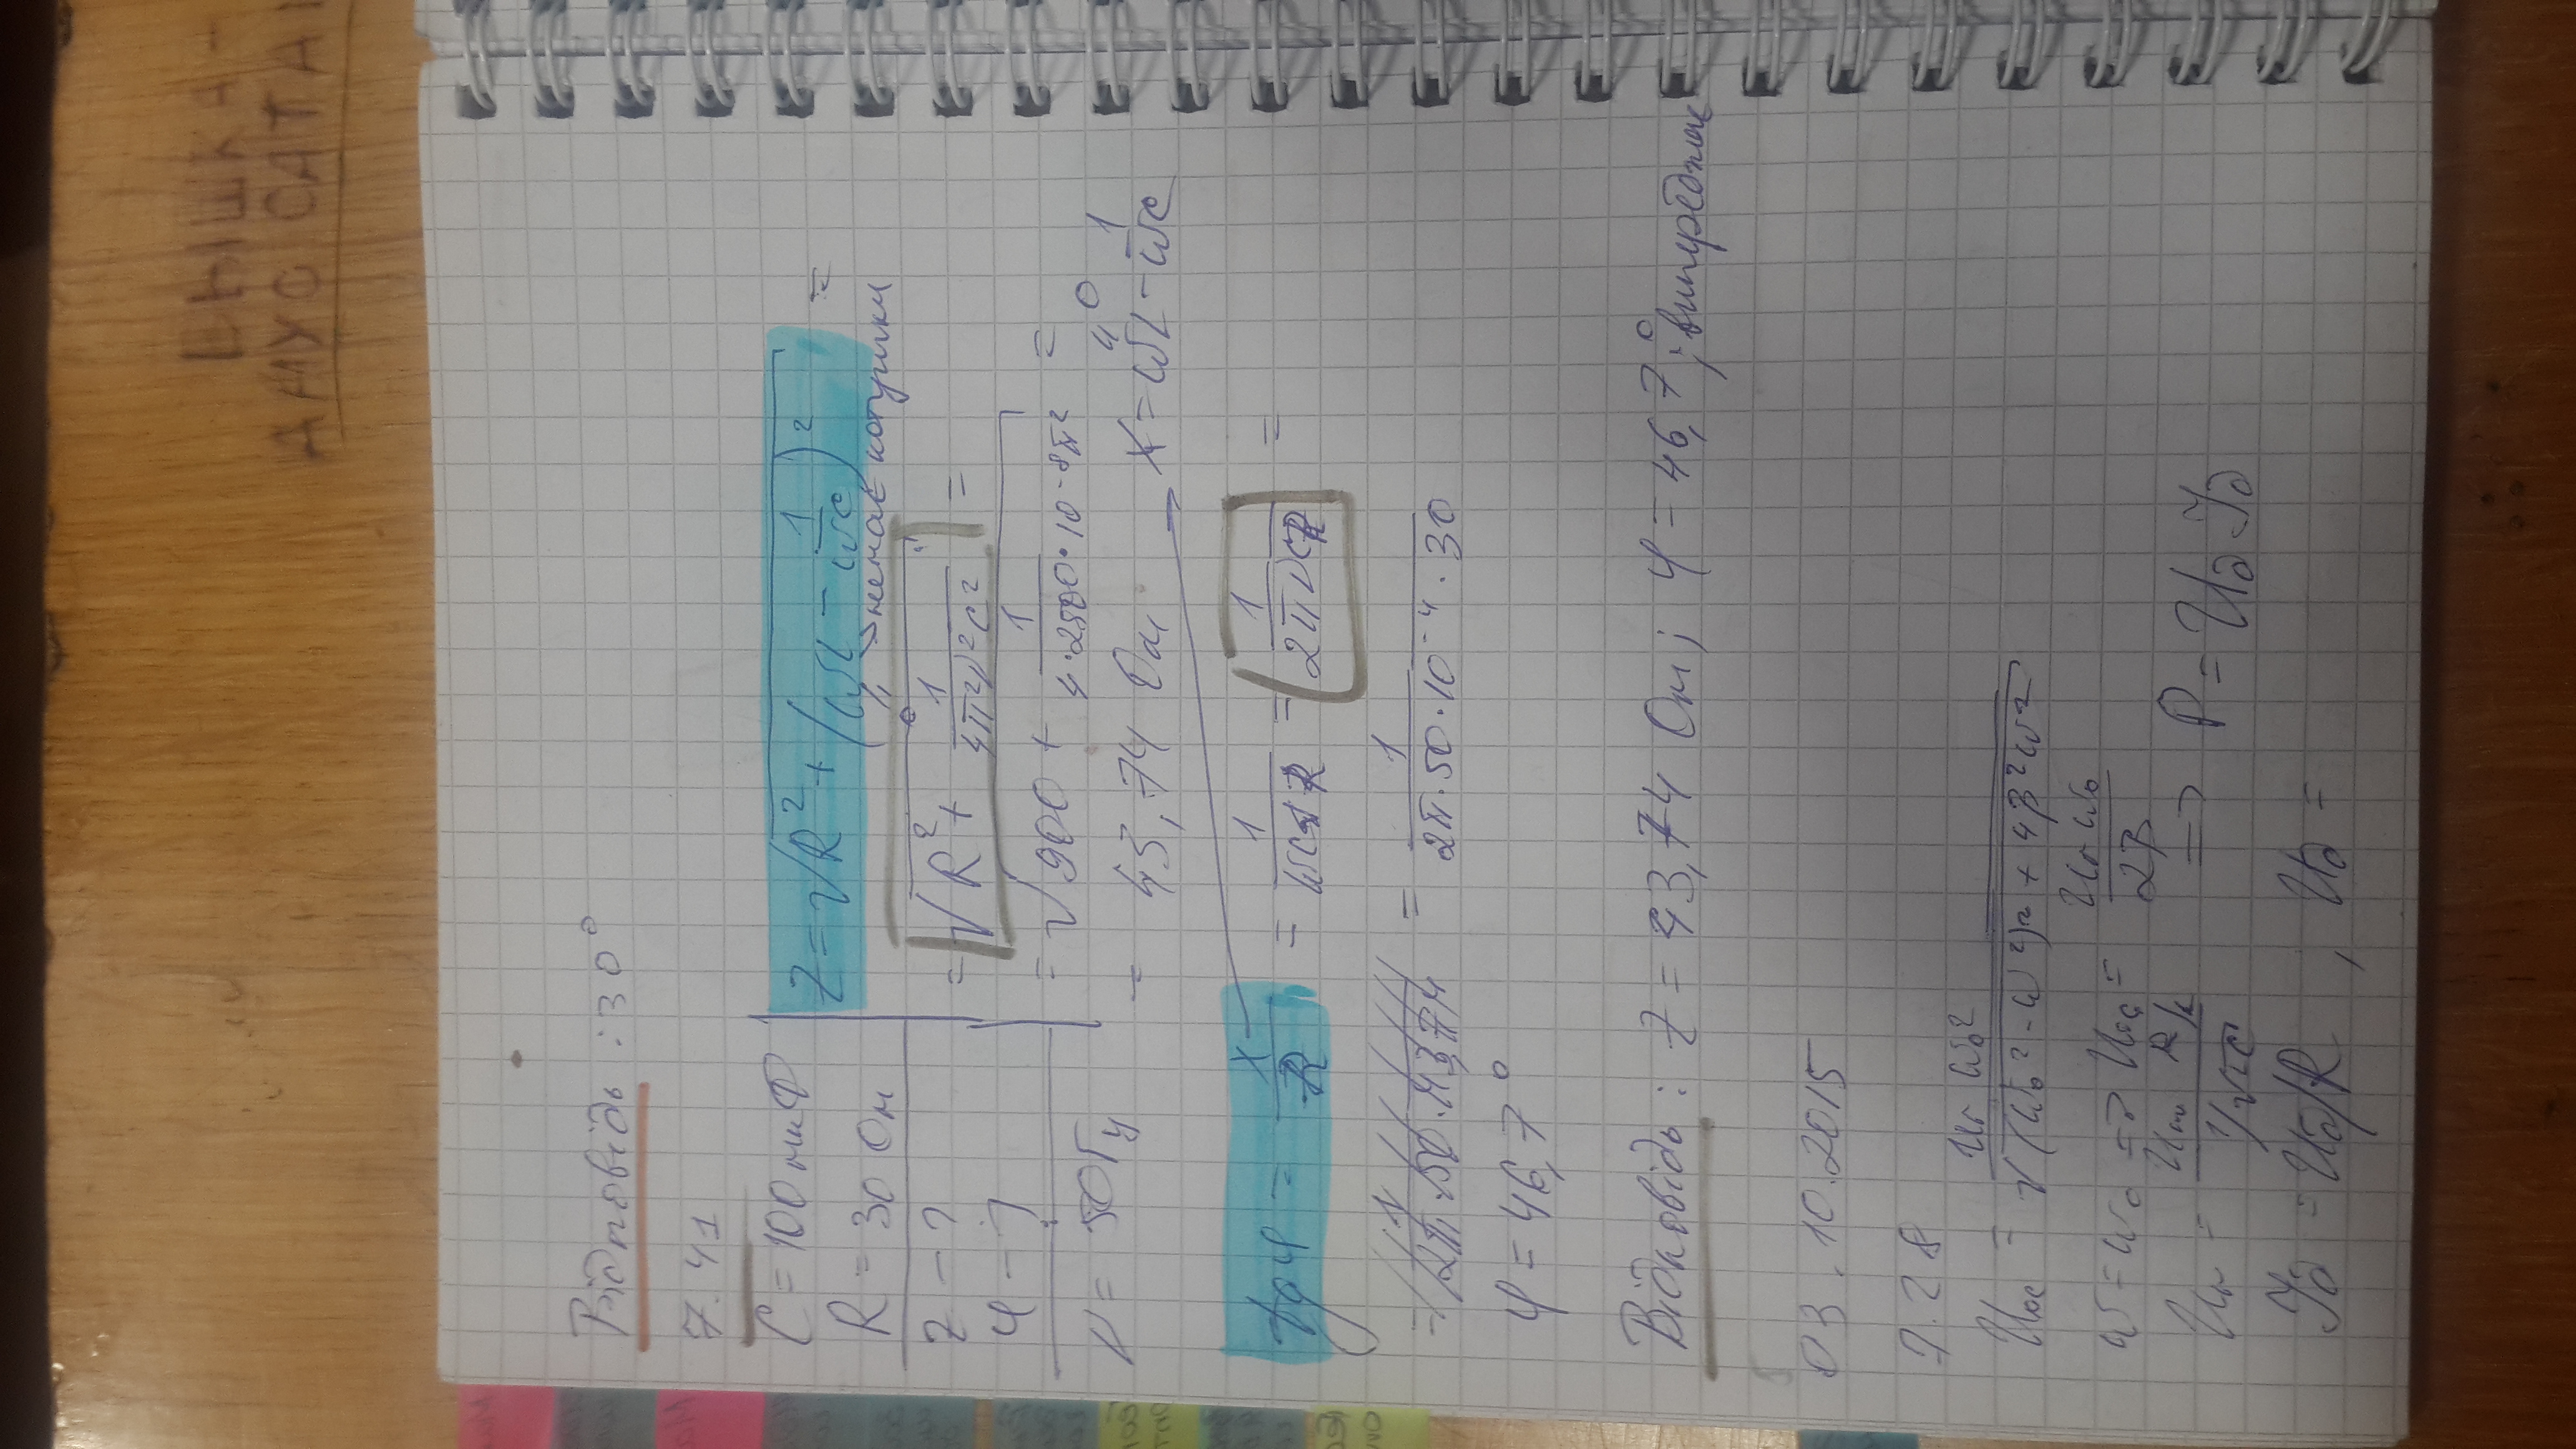 ВЫШКА -
ДАУС САТА
Відповідь : 30°
7.41
C = 100 мкФ
R = 30 Ом
Z - ?
φ - ?
ν = 50 Гц
Z = √(R² + (ωL - 1/ωC)²) =
0 немає котушки
= √(R² + 1/(4π²ν²C²)) =
= √(900 + 1/(4·2500·10⁻⁸π²)) =
= 43,74 Ом
0
X = ωL - 1/ωC
tgφ = X/R = 1/(ωCR) = 1/(2πνCR) =
= 1/(2π·50·43,74) = 1/(2π·50·10⁻⁴·30)
φ = 46,7°
Відповідь : Z = 43,74 Ом; φ = 46,7°; випереджає
03.10.2015
7.28
U₀c = Uг ω₀² / √((ω₀² - ω²)² + 4β²ω²)
ω = ω₀ => U₀c = Uг ω₀ / 2β
R/L / 1/√LC => P = U∂ I∂
I∂ = U∂/R , U∂ =